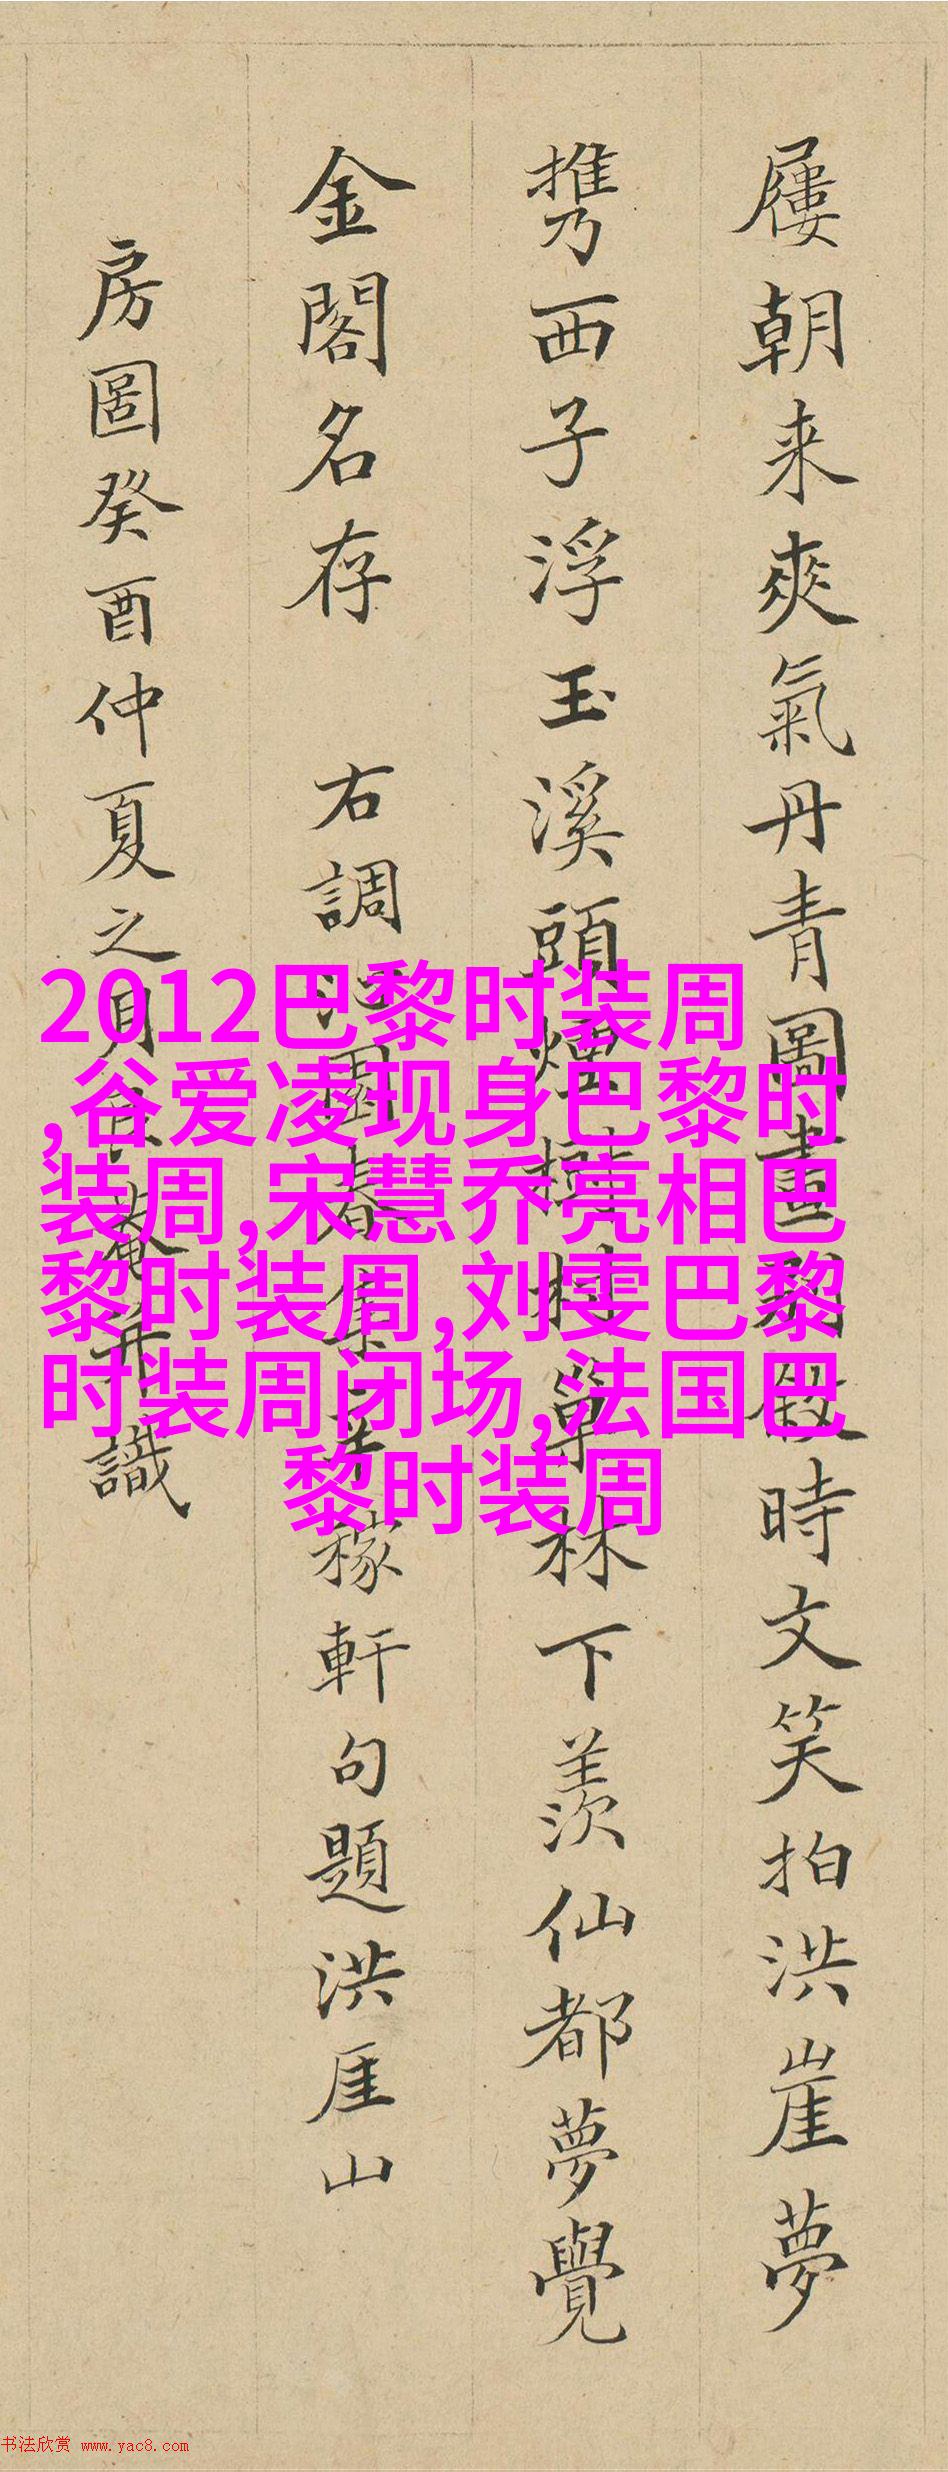 屨朝来爽氣丹青圖畫
時文笑拍洪崖夢
携西子浮玉溪頭煙樹村
林下羨仙都夢覺
金閣名存 右調沁園春集辛稼軒句題洪厓山
房圖癸酉仲夏之月
菴并識
2012巴黎时装周
,谷爱凌现身巴黎时
装周,宋慧乔亮相巴
黎时装周,刘雯巴黎
时装周闭场,法国巴
黎时装周
书法欣赏 www.yac8.com